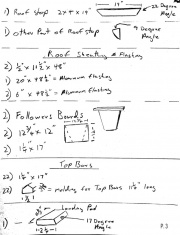 1) Roof stop 2x4 x 19"
19"
22 Degree Angle
1) Other Part of Roof stop
9 Degree Angle
Roof Sheating & Flashing
2) ½" x 11½" x 48"
2) 20" x 48½" = Aluminum Flashing
2) 6" x 48½" = Aluminum Flashing
2) Followers Boards
2) 12¾ x 12"
2) 1½ x 17"
Top Bars
22) 1½" x 17"
22) = molding for Top Bars 11½" long
Landing Pad
1)
17 Degree Angle
P.3